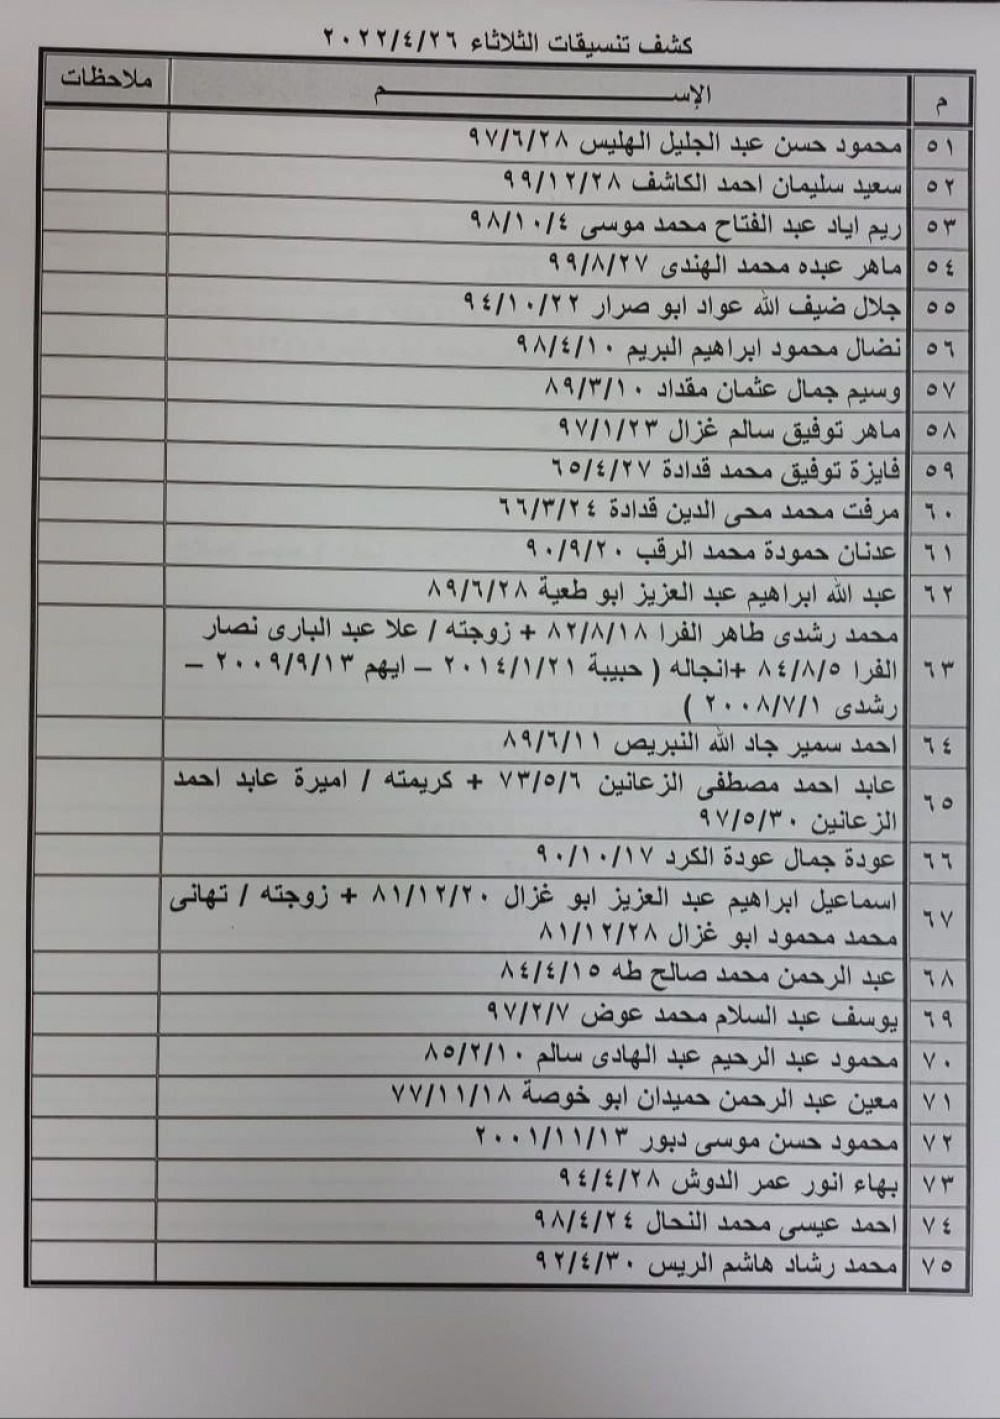 كشف تنسيقات الثلاثاء ٢٠٢٢/٤/٢٦
م الإســـــــــــــــــم ملاحظات
٥١ محمود حسن عبد الجليل الهليس ٩٧/٦/٢٨
٥٢ سعيد سليمان احمد الكاشف ٩٩/١٢/٢٨
٥٣ ريم اياد عبد الفتاح محمد موسى ٩٨/١٠/٤
٥٤ ماهر عبده محمد الهندى ٩٩/٨/٢٧
٥٥ جلال ضيف الله عواد ابو صرار ٩٤/١٠/٢٢
٥٦ نضال محمود ابراهيم البريم ٩٨/٤/١٠
٥٧ وسيم جمال عثمان مقداد ٨٩/٣/١٠
٥٨ ماهر توفيق سالم غزال ٩٧/١/٢٣
٥٩ فايزة توفيق محمد قدادة ٦٥/٤/٢٧
٦٠ مرفت محمد محى الدين قدادة ٦٦/٣/٢٤
٦١ عدنان حمودة محمد الرقب ٩٠/٩/٢٠
٦٢ عبد الله ابراهيم عبد العزيز ابو طعية ٨٩/٦/٢٨
محمد رشدى طاهر الفرا ٨٢/٨/١٨ + زوجته / علا عبد البارى نصار
٦٣ الفرا ٨٤/٨/٥ +انجاله ( حبيبة ٢٠١٤/١/٢١ – ايهم ٢٠٠٩/٩/١٣ –
رشدى ٢٠٠٨/٧/١ )
٦٤ احمد سمير جاد الله النبريص ٨٩/٦/١١
٦٥ عابد احمد مصطفى الزعانين ٧٣/٥/٦ + كريمته / اميرة عابد احمد
الزعانين ٩٧/٥/٣٠
٦٦ عودة جمال عودة الكرد ٩٠/١٠/١٧
٦٧ اسماعيل ابراهيم عبد العزيز ابو غزال ٨١/١٢/٢٠ + زوجته / تهانى
محمد محمود ابو غزال ٨١/١٢/٢٨
٦٨ عبد الرحمن محمد صالح طه ٨٤/٤/١٥
٦٩ يوسف عبد السلام محمد عوض ٩٧/٢/٧
٧٠ محمود عبد الرحيم عبد الهادى سالم ٨٥/٢/١٠
٧١ معين عبد الرحمن حميدان ابو خوصة ٧٧/١١/١٨
٧٢ محمود حسن موسى دبور ٢٠٠١/١١/١٣
٧٣ بهاء انور عمر الدوش ٩٤/٤/٢٨
٧٤ احمد عيسى محمد النحال ٩٨/٤/٢٤
٧٥ محمد رشاد هاشم الريس ٩٢/٤/٣٠